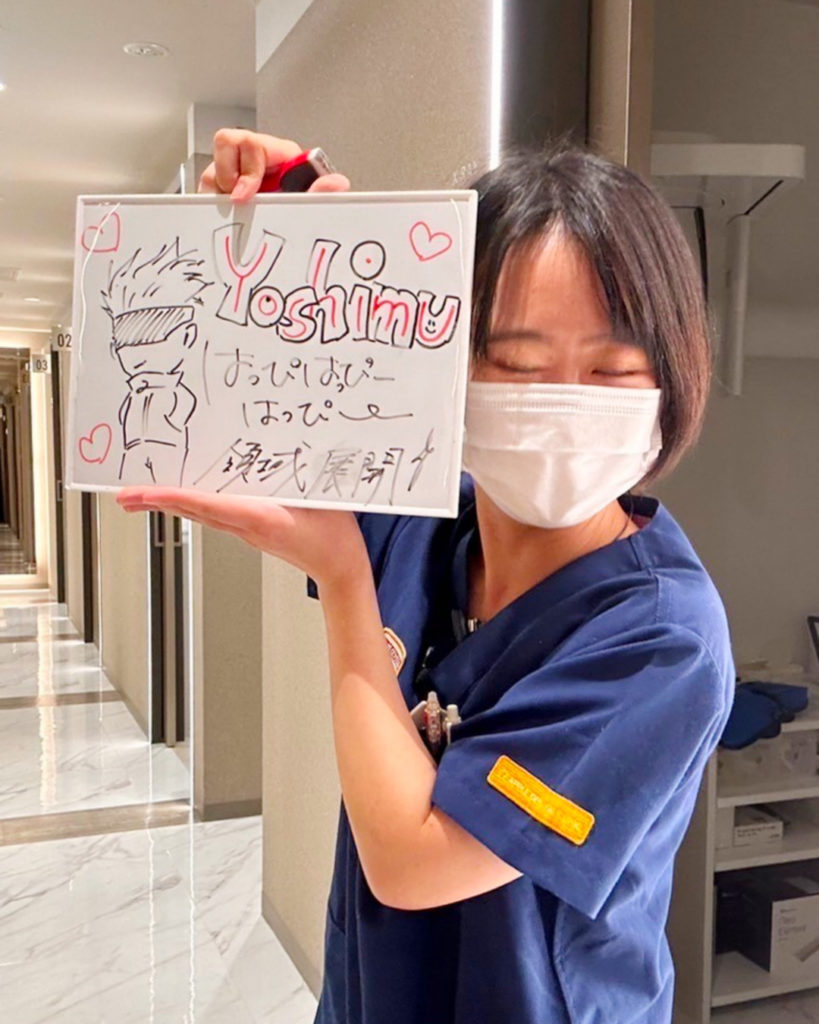 Yoshimu
はっぴはっぴー
はっぴー
領域展開
03
02